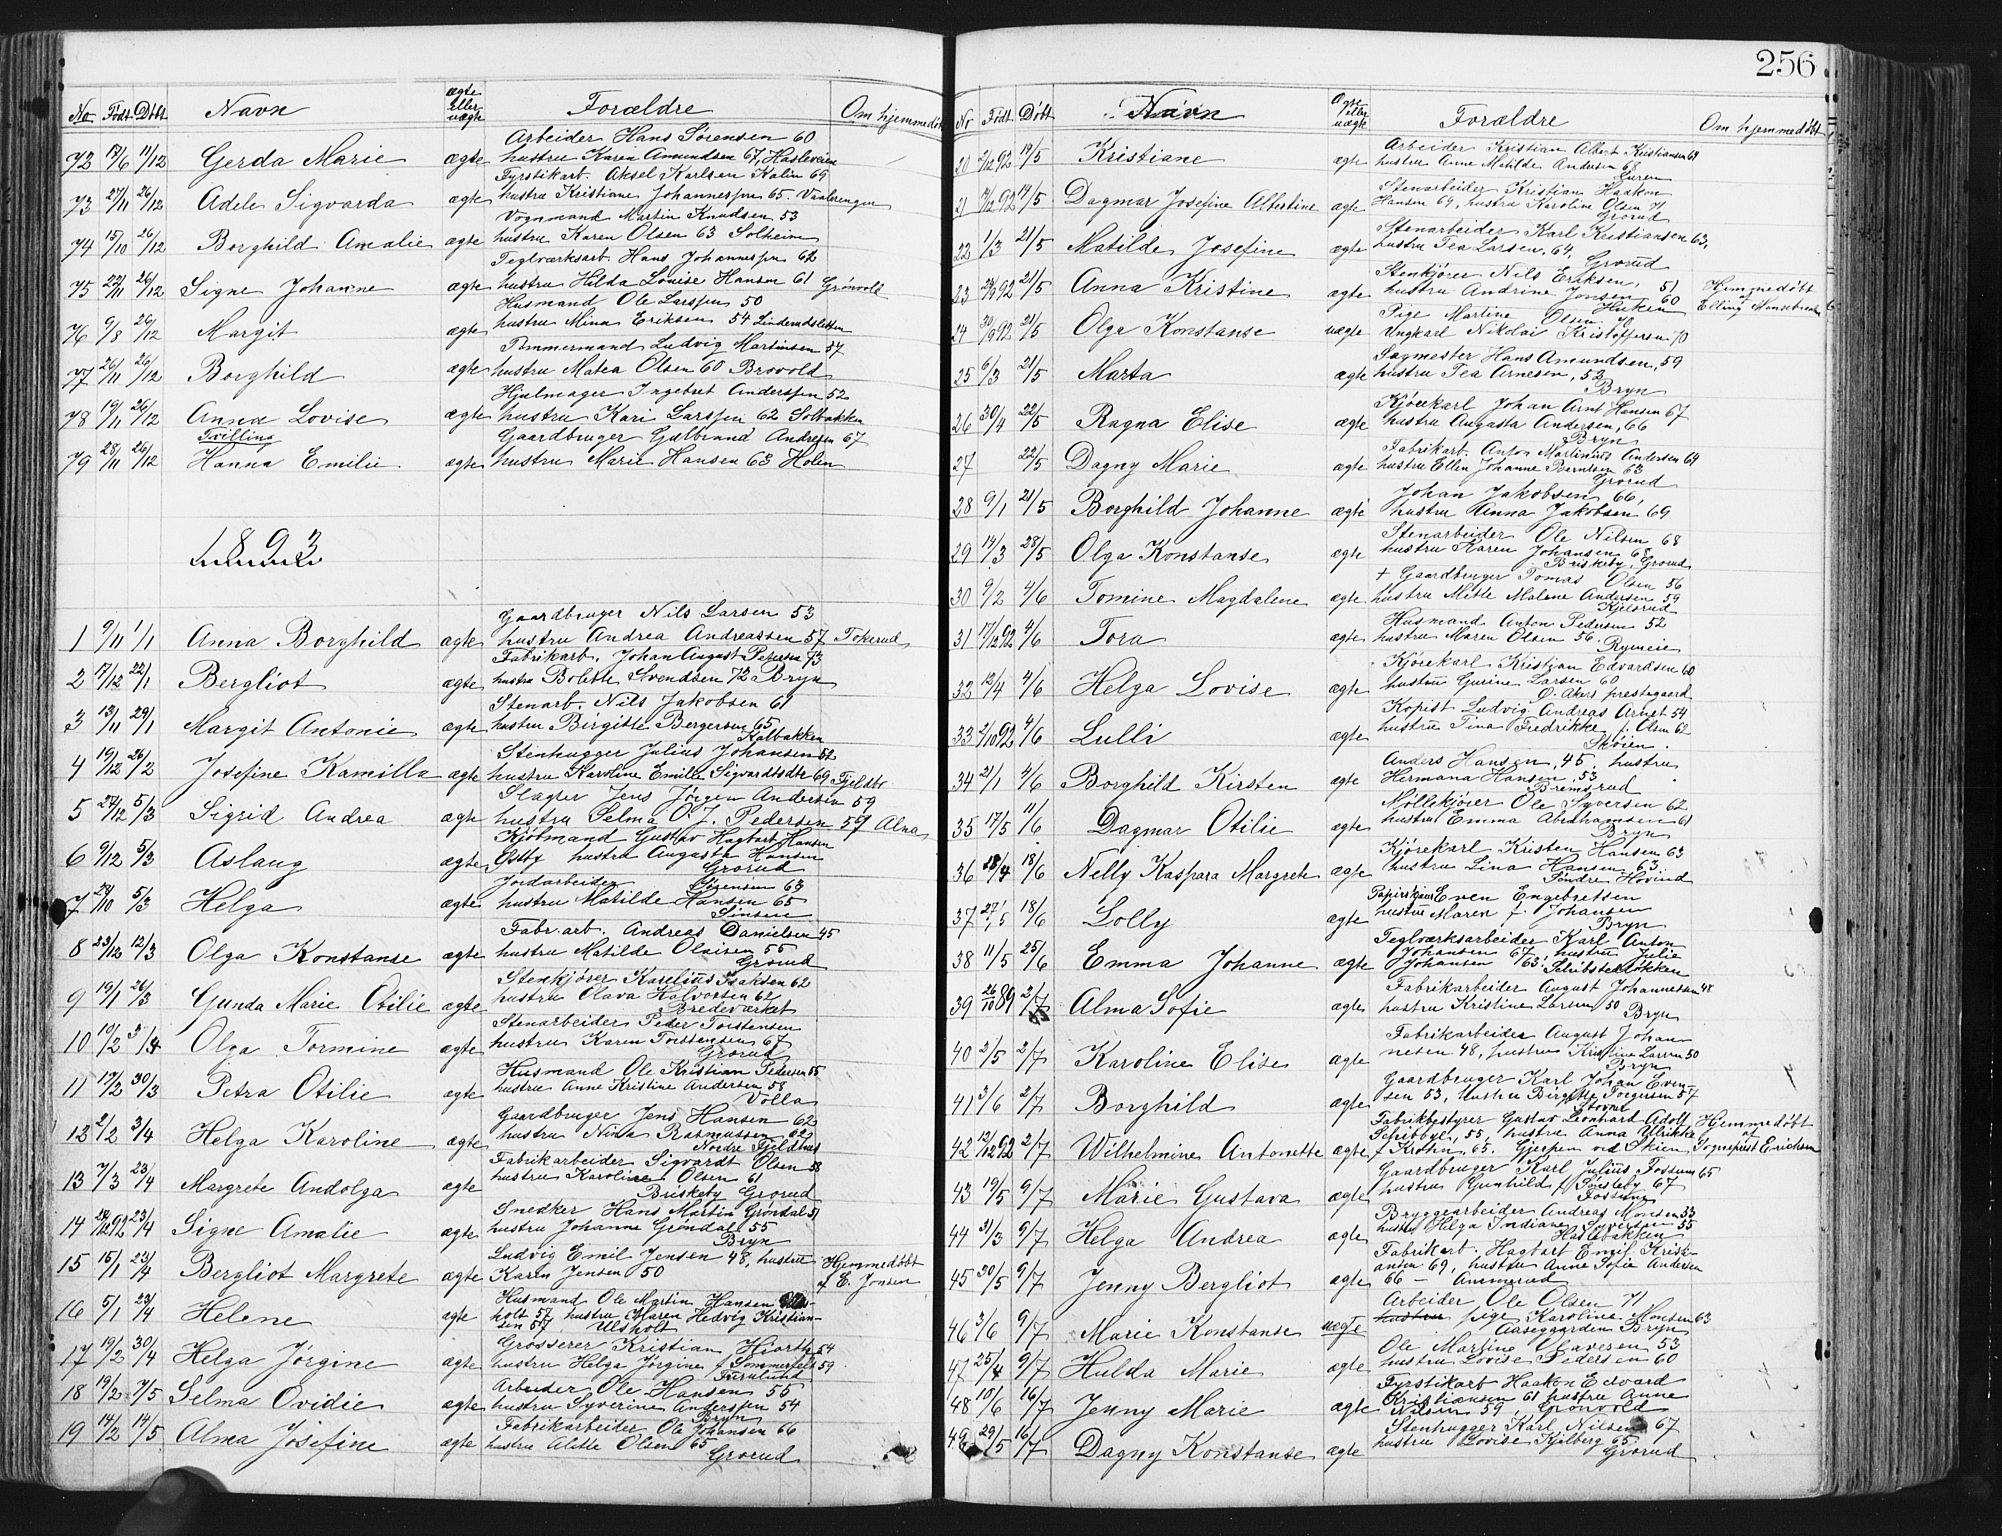 256
No Født Døbt Navn ægte eller uægte Forældre Om hjemmedøbt
Arbeider Hans Sørensen 60
72 12/6 11/12 Gerda Marie ægte hustru Karen Amundsen 67, Hasleveien
Fyrstikarb. Aksel Karlsen Kalin 69
73 27/11 26/12 Adele Sigvarda ægte hustru Kristiane Johannesen 65. Vaalerengen
Vognmand Martin Knudsen 53
74 15/10 26/12 Borghild Amalie ægte hustru Karen Olsen 63 Solheim
Teglværksarb. Hans Johannesen 62
75 22/11 26/12 Signe Johanne ægte hustru Hilda Louise Hansen 61 Grønvold
Husmand Ole Larssen 50
76 9/8 26/12 Margit ægte hustru Mina Eriksen 54
Tømmermand Ludvig Martinsen 57
77 26/11 26/12 Borghild ægte hustru Matea Olsen 60 Brovold
Hjulmager Ingebret Anderssen 52
78 19/11 26/12 Anna Lovise ægte hustru Kari Larssen 62 Solbakken
Tvilling
Gaardbruger Gulbrand Andresen 67
79 28/11 26/12 Hanna Emilie ægte hustru Marie Hansen 63 Holen
1893
Gaardbruger Nils Larsen 53
1 9/11 1/1 Anna Borghild ægte hustru Andrea Andreassen 57 Tokerud
Fabrikarb. Johan August Petersen 73
2 17/12 22/1 Bergliot ægte hustru Bolette Svendsen 72 Bryn
Stenarb. Nils Jakobsen 61
3 13/11 29/1 Margit Antonie ægte hustru Birgitte Bergersen 65
Kalbakken
Stenhugger Julius Johansen 52
4 19/12 26/2 Josefine Kamilla ægte hustru Karoline Emilie Sigvardtsdtr 69
Slagter Jens Jørgen Andersen 59
5 24/12 5/3 Sigrid Andrea ægte hustru Selma O. J. Pedersen 59 Alna
Kjøtmand Gustav Hagbart Hansen
6 9/12 5/3 Aslaug ægte Østby hustru Augusta Hansen
Grorud
Jordarbeider Sørensen 63
7 24/10 5/3 Helga ægte hustru Matilde Hansen 65
Sinsen
Fabr. arb. Andreas Danielsen 45
8 23/12 12/3 Olga Konstanse ægte hustru Matilde Olaisen 55
Grorud
Stenkjører Karelius Isaksen 62
9 19/1 26/3 Gunda Marie Otilie ægte hustru Olava Halvorsen 62
Bredeverket
Stenarbeider Peder Torstensen
10 19/2 3/4 Olga Tormine ægte hustru Karen Torstensen 67
Grorud
Husmand Ole Kristian Pedersen 55
11 17/2 30/3 Petra Otilie ægte hustru Anne Kristine Andersen 58
Volla
Gaardbruger Jens Hansen 62
12 2/2 3/4 Helga Karoline ægte hustru Nina Rasmussen 62
Nordre Fjeldhus
Fabrikarbeider Sigvardt Olsen 58
13 7/3 23/4 Margrete Andolga ægte hustru Karoline Olsen 61
Briskeby Grorud
Snedker Hans Martin Grøndal 51
14 24/12 92 23/4 Signe Amalie ægte hustru Johanne Grøndal 55
Bryn
Ludvig Emil Jensen 48, hustru Hjemmedøbt
15 15/1 23/4 Bergliot Margrete ægte Karen Jensen 50 af E. Jonsen
Husmand Ole Martin Hansen
16 5/1 23/4 Helene ægte holt 57, hustru Maren Hedvig Kristian-
sen 57, Ulsholt
Grosserer Kristian Hiorth 54
17 19/2 30/4 Helga Jørgine ægte hustru Helga Jørgine f. Sommerfelt 59
Furulund
Arbeider Ole Hansen 55
18 19/2 7/5 Selma Ovidie ægte hustru Syverine Anderssen 54
Bryn
Fabrikarbeider Ole Johansen 66
19 14/2 14/5 Alma Josefine ægte hustru Alette Olsen 65
Grorud
No Født Døbt Navn Ægte eller uægte Forældre Om hjemmedøbt
Arbeider Kristian Albert Kristiansen 69
20 2/12 92 14/5 Kristiane ægte hustru Anne Matilde Andersen 68
Furen
Stenarbeider Kristian Haakon
21 14/12 92 14/5 Dagmar Josefine Albertine ægte Hansen 69, hustru Karoline Olsen 71
Grorud
Stenarbeider Karl Kristiansen 63,
22 1/3 21/5 Matilde Josefine ægte hustru Tea Larsen, 64,
Grorud
Stenkjører Nils Eriksen, 51 Hjemmedøbt
23 24/9 92 21/5 Anna Kristine ægte hustru Andrine Jonsen 60 af
Huken Elling
Pige Martine Olsen 71
24 30/9 92 21/5 Olga Konstanse uægte Ungkarl Nikolai Kristoffersen 70
Sagmester Hans Amundsen, 59
25 6/3 21/5 Marta ægte hustru Tea Arnesen, 53
Bryn
Kjørekarl Johan Arnt Hansen 67
26 30/4 22/5 Ragna Elise ægte hustru Augusta Andersen, 66
Bryn
Fabrikarb. Anton Martinius Andersen 64
27 22/5 Dagny Marie ægte hustru Ellen Johanne Berntsen 63
Grorud
Johan Jakobsen 66,
28 9/1 21/5 Borghild Johanne ægte hustru Anna Jakobsen 69
Stenarbeider Ole Nilsen 68
29 14/3 28/5 Olga Konstanse ægte hustru Karen Johansen 68
Briskeby, Grorud
+ Gaardbruger Tomas Olsen 56
30 9/2 4/6 Tomine Magdalene ægte hustru Mette Malene Andersen 59
Kjelsrud
Husmand Anton Pedersen 52
31 17/12 92 4/6 Tora ægte hustru Maren Olsen 56.
Rymeie
Kjørekarl Kristian Edvardsen 60
32 12/4 4/6 Helga Lovise ægte hustru Gurine Larsen 60
Ø. Akers prestegaard
Kopist Ludvig Andreas Arnet 54
33 2/10 92 4/6 Lulli ægte hustru Tina Fredrikke f. Olsen 62
Skøien.
Anders Hansen, 45, hustru
34 21/1 4/6 Borghild Kirsten ægte Hermana Hansen, 53
Bremsrud
Møllekjører Ole Syversen 62
35 17/5 11/6 Dagmar Otilie ægte hustru Emma Abrahamsen 61
Bryn
Kjørekarl Kristen Hansen 63
36 28/4 18/6 Nelly Kaspara Margrete ægte hustru Lina Hansen 63
Søndre Hovind
Even Engebretsen
37 27/5 18/6 Lolly ægte hustru Maren f. Johansen
Bryn
Teglværksarbeider Karl Anton
38 11/5 25/6 Emma Johanne ægte Johansen 67, hustru Julie
Johansen 63,
Fabrikarbeider August Johannessen 48
39 26/10 89 2/7 Alma Sofie ægte hustru Kristine Larsen 50
Bryn
Fabrikarbeider August Johan
40 2/5 2/7 Karoline Elise ægte nesen 48, hustru Kristine Larsen 50
Bryn
Gaardbruger Karl Johan Even-
41 3/6 2/7 Borghild ægte sen 53, hustru Birgitte Torgersen 57
Stovne
Fabrikbestyrer Gustav Leonhard Adolf Hjemmedøbt
Schibbye, 55, hustru Anna Ulrikke af
42 12/12 92 2/7 Wilhelmine Antonette ægte f. Krohn, 65. Gjerpen ved Skien Sognepræst Erichsen
Gaardbruger Karl Julius Fossum 65
43 19/5 9/7 Marie Gustava ægte hustru Gunhild f. 67
Fossum
Bryggearbeider Andreas Monsen 53
44 31/3 9/7 Helga Andrea ægte hustru Helga Indiane Syversen 55
Haslebakken
Fabrikarb. Hagbart Emil Krist-
45 30/5 9/7 Jenny Bergliot ægte ansen 69, hustru Anne Sofie Andersen
66 — Ammerud
Arbeider Ole Olsen 71
46 3/6 9/7 Marie Konstanse uægte hustru pige Karoline Monsen 63
Aasegaarden Bryn
Ole Martin Olaversen 53
47 25/4 9/7 Hulda Marie ægte hustru Lovise Pedersen 60
Fyrstikarb Haakon Edvard
48 10/6 16/7 Jenny Marie ægte Kristiansen 61 hustru Anne
Nilsen 59, Grønvold
Stenhugger Karl Nilsen 67
49 29/5 16/7 Dagny Konstanse ægte hustru Lovise Kjølberg 65
Grorud